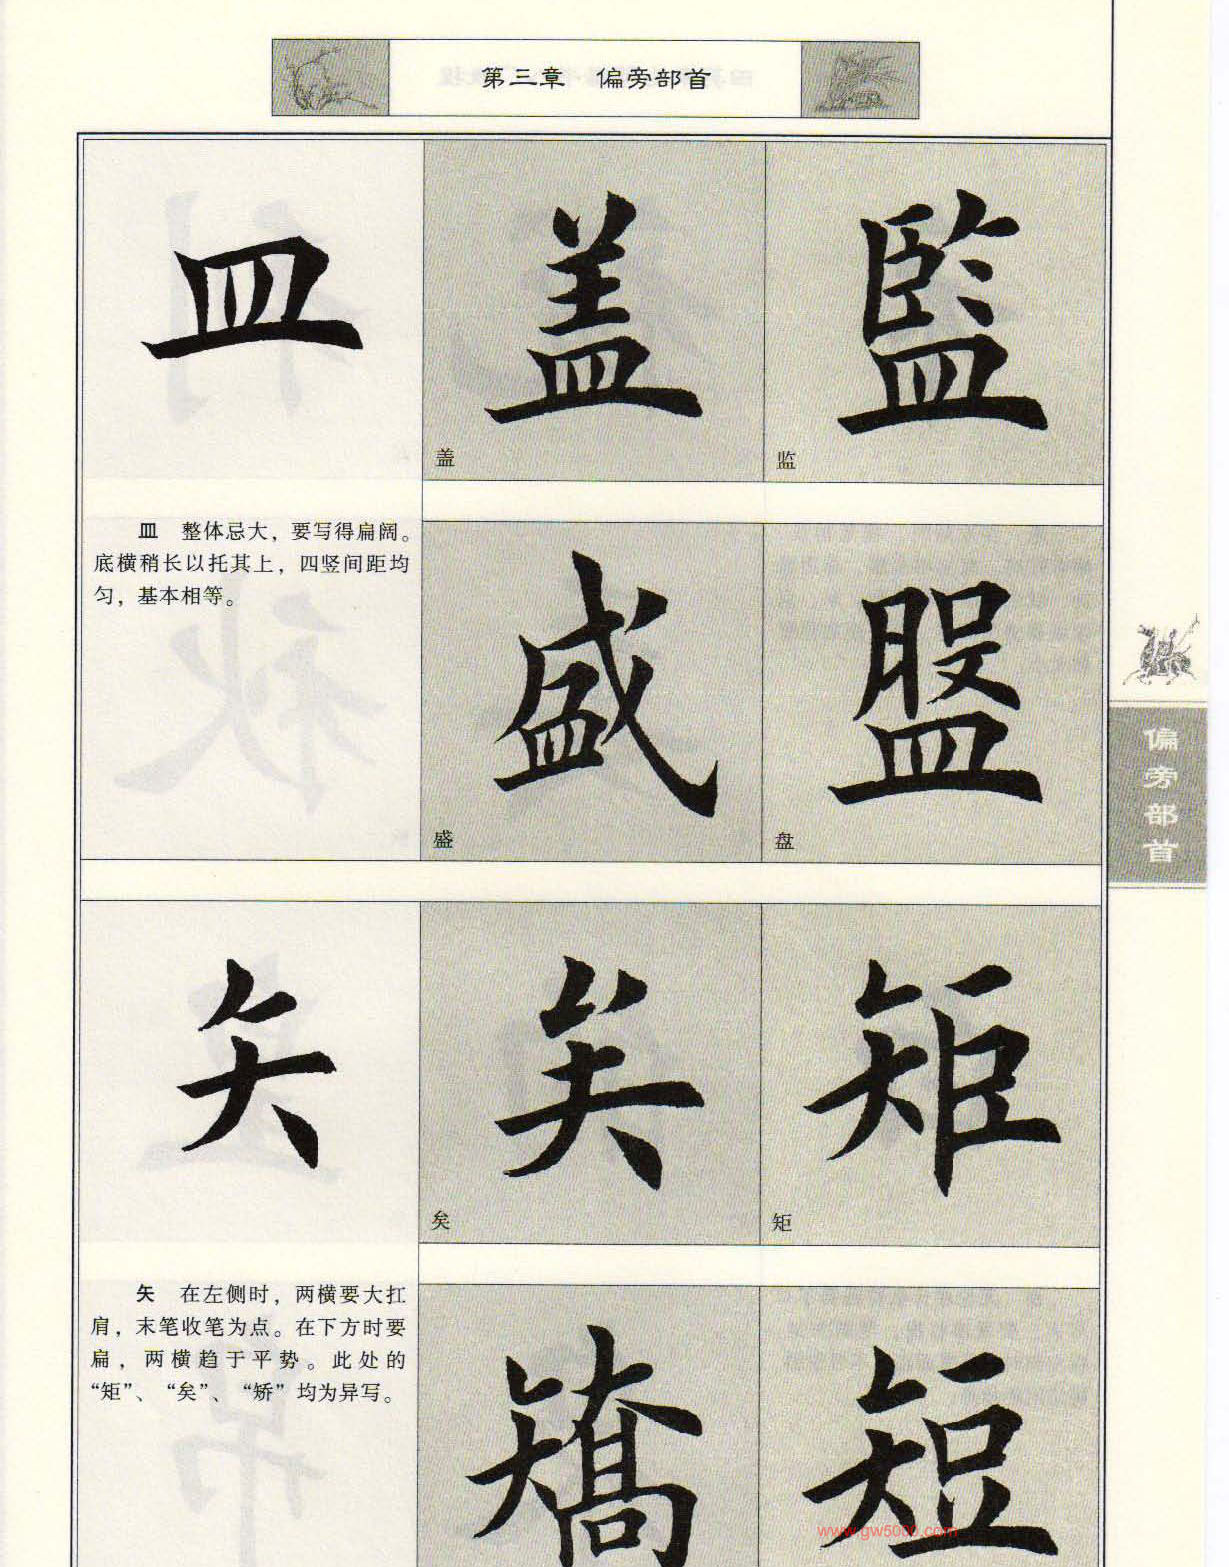 第三章 偏旁部首
皿
盖
監
盖
监
皿 整体忌大，要写得扁阔。
底横稍长以托其上，四竖间距均
匀，基本相等。
盛
盤
盛
盘
偏旁部首
矢
矣
矩
矣
矩
矢 在左侧时，两横要大扛
肩，末笔收笔为点。在下方时要
扁，两横趋于平势。此处的
“矩”、“矣”、“矫”均为异写。
矯
短
www.gw5000.com